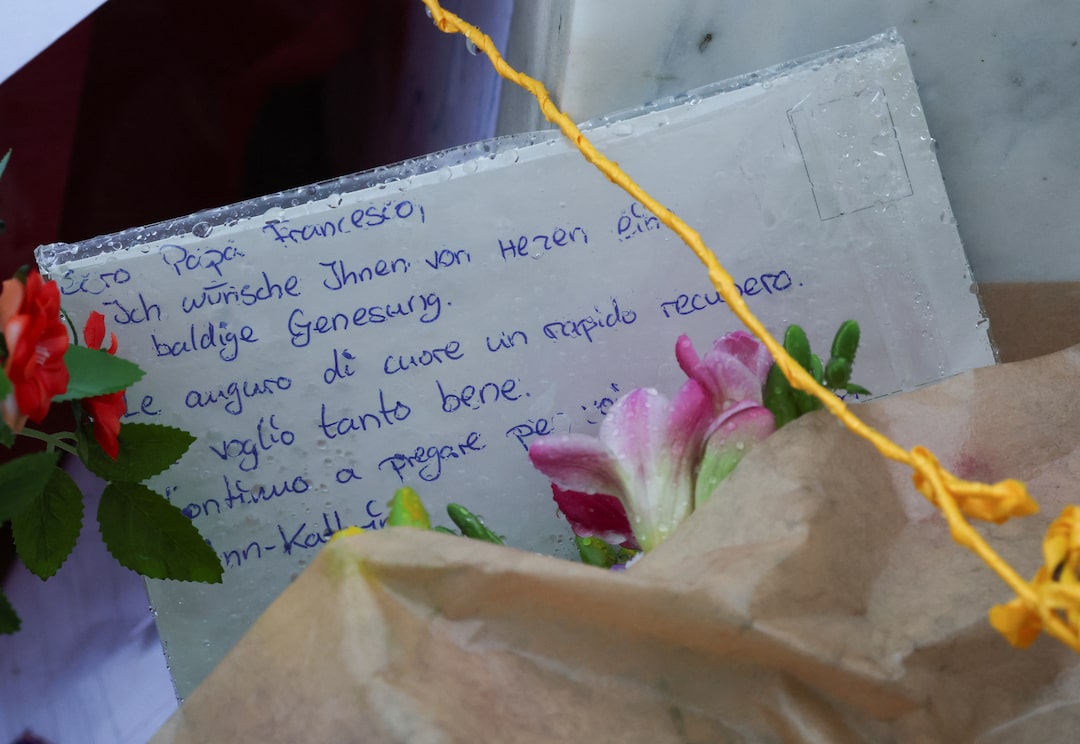 Caro Papa Francesco,
Ich wünsche Ihnen von Herzen ein
baldige Genesung.
Le auguro di cuore un rapido recupero.
voglio tanto bene.
Continuo a pregare per